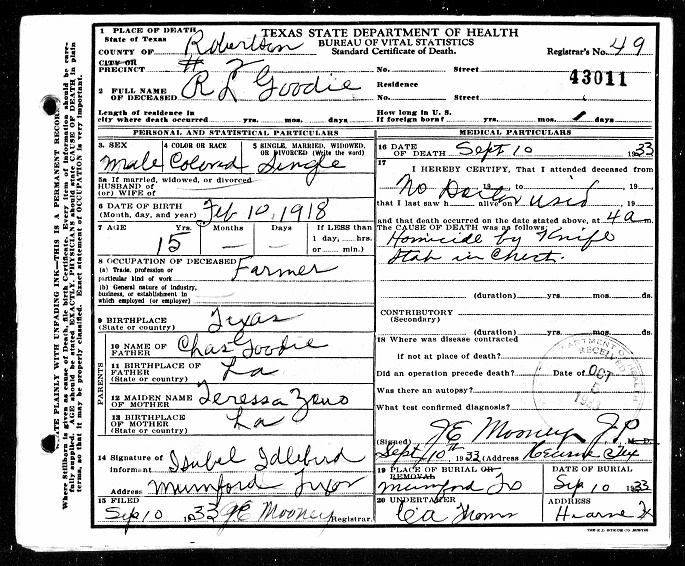 1 PLACE OF DEATH
State of Texas
COUNTY OF Robertson
CITY OR
PRECINCT # 2
TEXAS STATE DEPARTMENT OF HEALTH
BUREAU OF VITAL STATISTICS
Standard Certificate of Death.
Registrar's No. 49
No. Street
43011
2 FULL NAME
OF DECEASED R L Goodie
Residence
No. Street
Length of residence in
city where death occurred yrs. mos. days.
How long in U. S.
If foreign born? yrs. mos. days
PERSONAL AND STATISTICAL PARTICULARS
3. SEX 4 COLOR OR RACE 5 SINGLE, MARRIED, WIDOWED,
OR DIVORCED (Write the word)
Male Colored Single
5a If married, widowed, or divorced
HUSBAND of
(or) WIFE of
6 DATE OF BIRTH
(Month, day, and year) Feb 10, 1918
7 AGE Yrs. Months Days If LESS than
15 — — 1 day, hrs.
or min.)
8 OCCUPATION OF DECEASED
(a) Trade, profession or
particular kind of work Farmer
(b) General nature of industry,
business, or establishment in
which employed (or employer)
9 BIRTHPLACE
(State or country) Texas
PARENTS
10 NAME OF
FATHER Chas Goodie
11 BIRTHPLACE OF
FATHER
(State or country) La
12 MAIDEN NAME
OF MOTHER Teressa Zeno
13 BIRTHPLACE
OF MOTHER
(State or country) La
14 Signature of
informant Isubel Idlebird
Address Mumford Texas
15 FILED
Sep 10 1933 J E Mooney Registrar.
MEDICAL PARTICULARS
16 DATE
OF DEATH Sept 10 1933
17
I HEREBY CERTIFY, That I attended deceased from
No Doctor 19 to 19
that I last saw h alive on used 19
and that death occurred on the date stated above, at 4 a m.
The CAUSE OF DEATH was as follows:
Homicide by Knife
Stab in Chest.
(duration) yrs. mos. ds.
CONTRIBUTORY
(Secondary)
(duration) yrs. mos. ds.
18 Where was disease contracted
if not at place of death?
Did an operation precede death? Date of
Was there an autopsy?
What test confirmed diagnosis?
DEPARTMENT OF HEALTH
RECEIVED
OCT
5
1933
(Signed) J E Mooney J.P. M. D.
Sept 10th, 1933 (Address Hearne Tex
19 PLACE OF BURIAL OR
REMOVAL
Mumford Tx
DATE OF BURIAL
Sep 10 1933
20 UNDERTAKER
ADDRESS
Hearne Tx